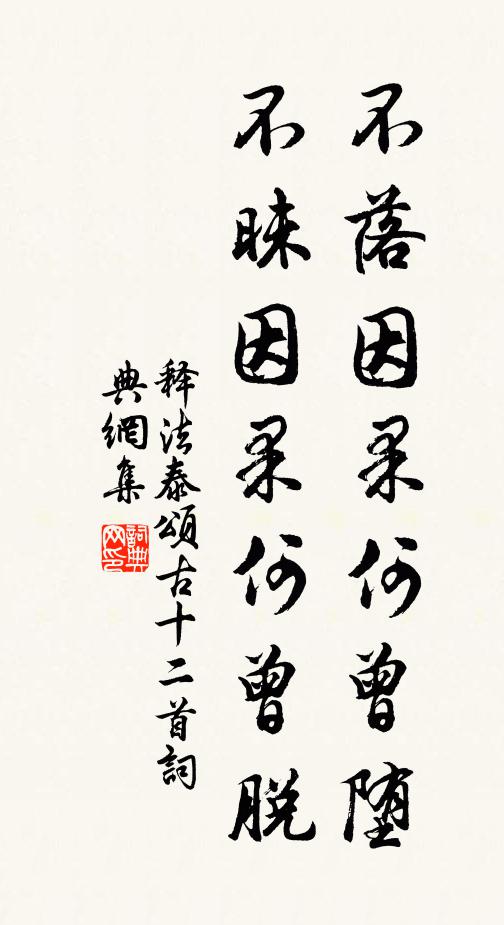 不落因果何曾堕
不昧因果何曾脱
释法泰頌古十二首詞
典網集
詞典网印